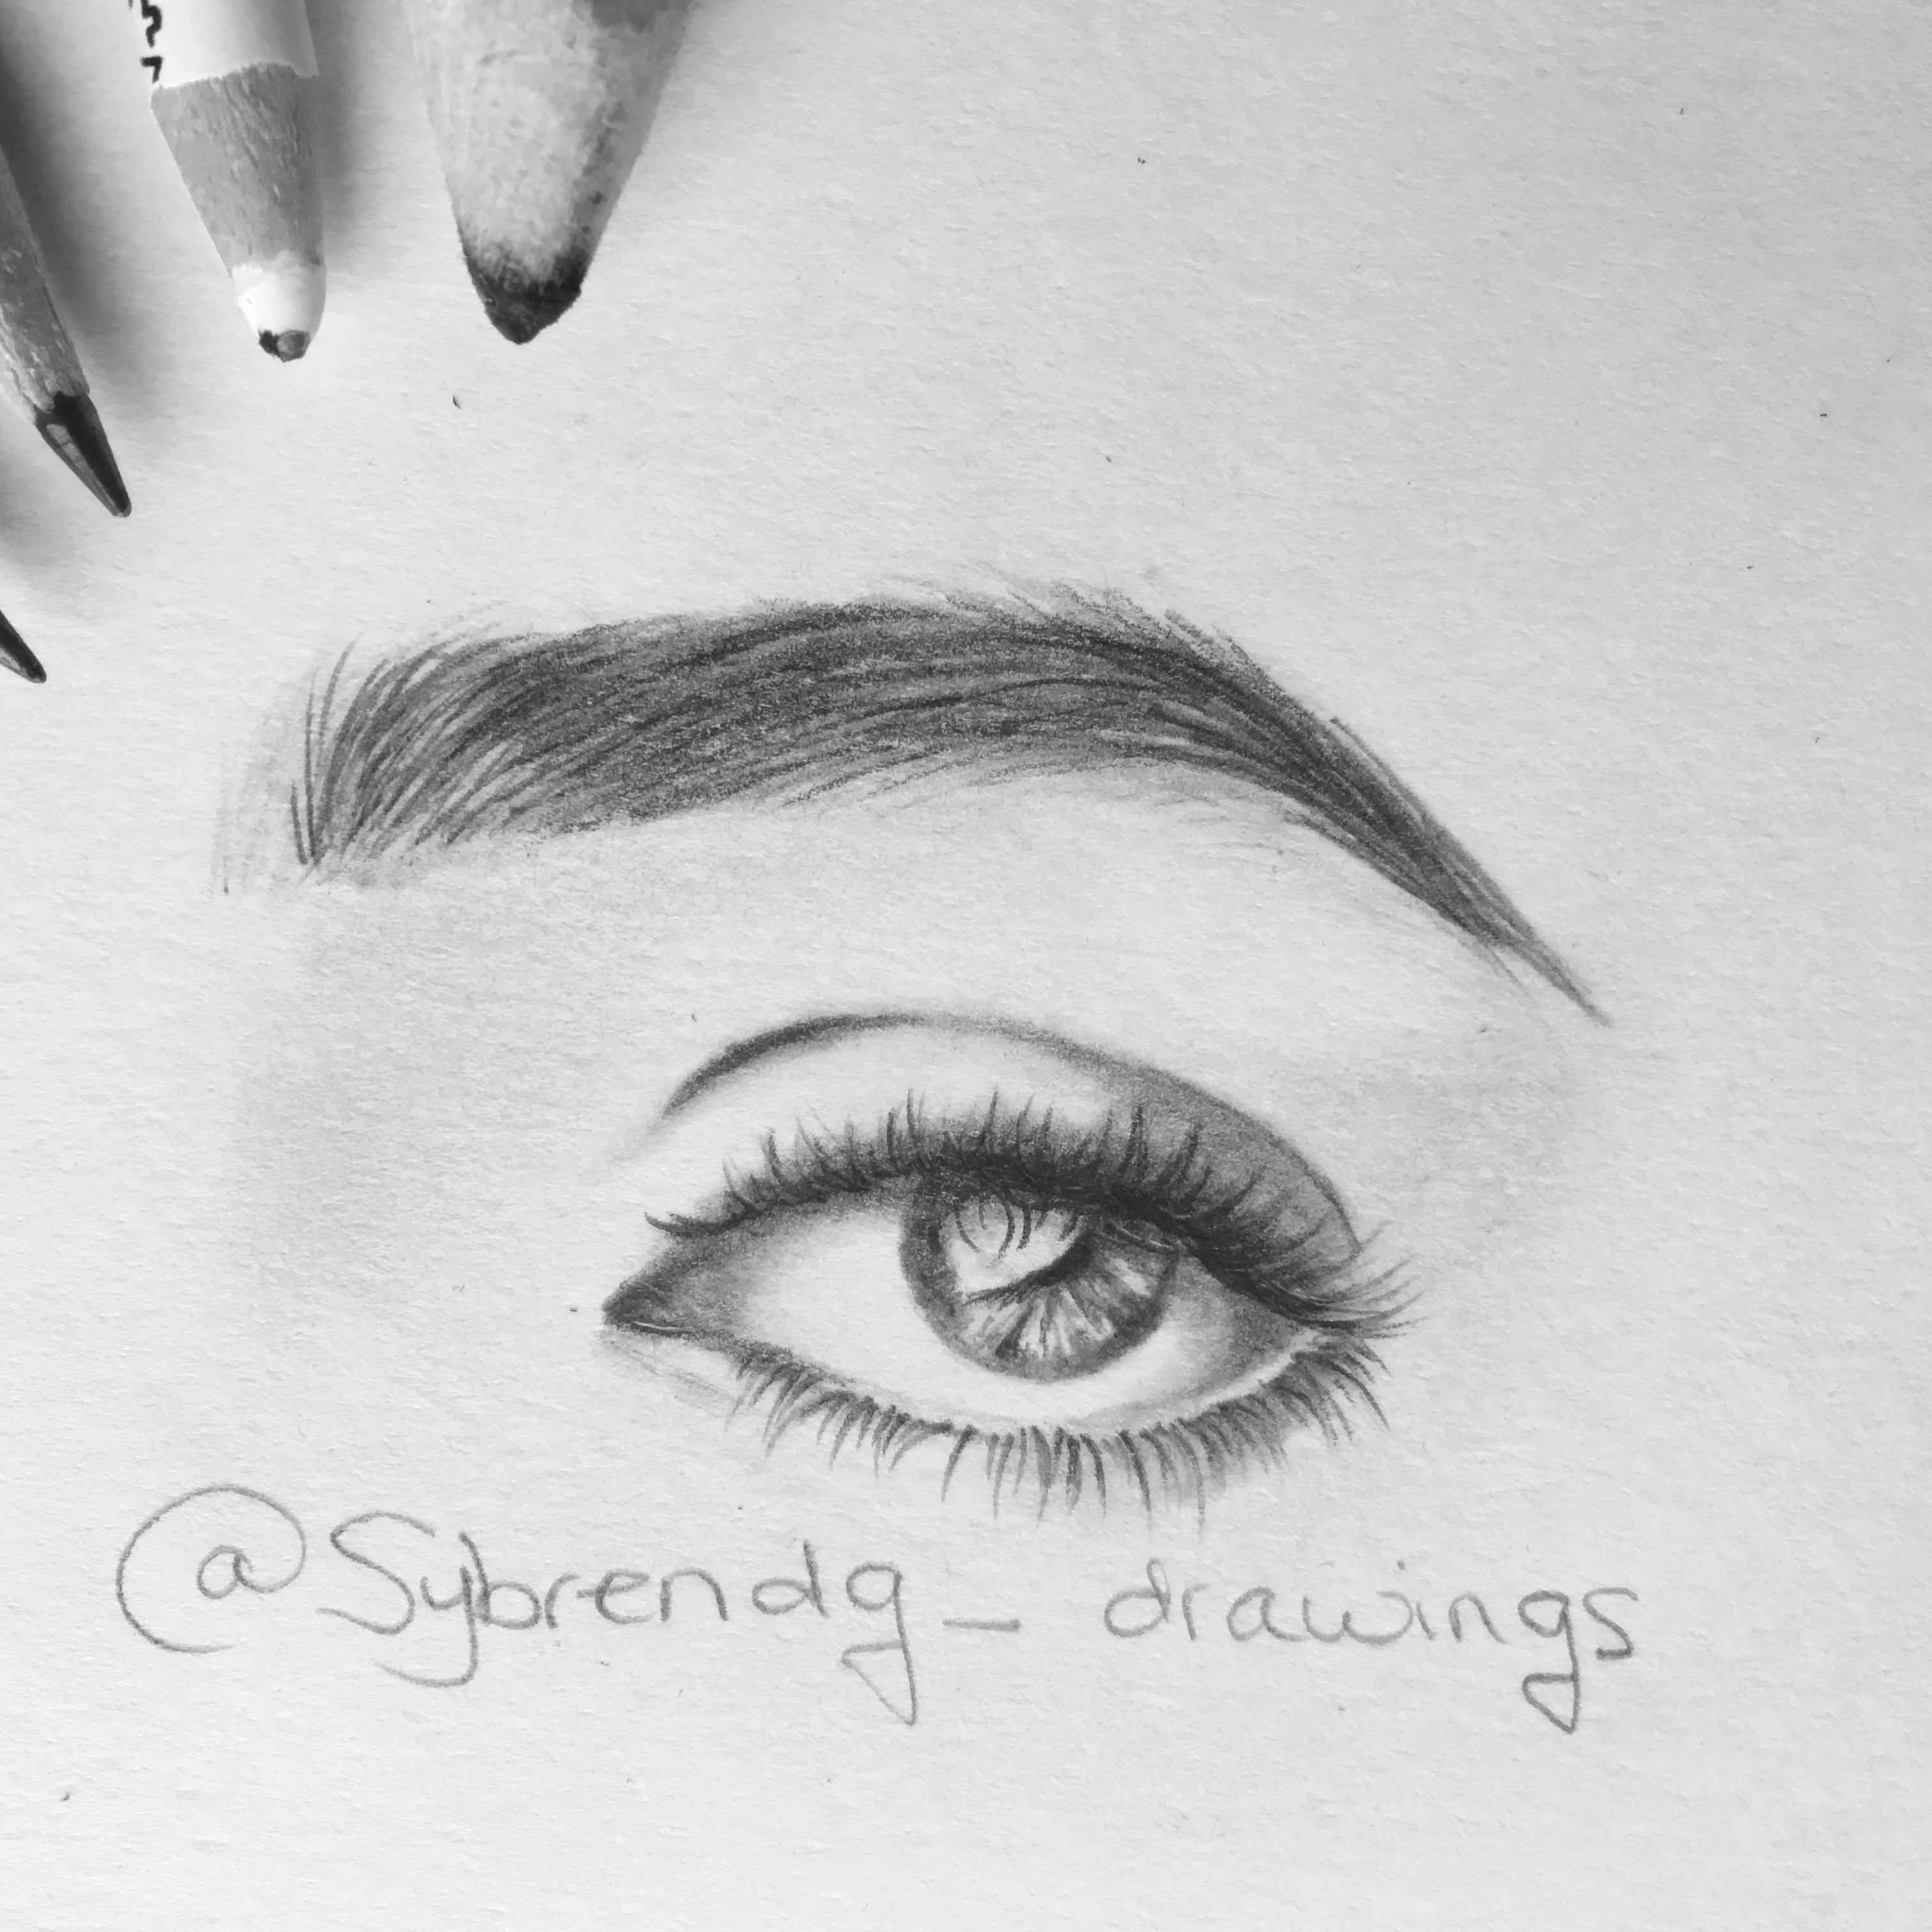 @Sybrendg_ drawings